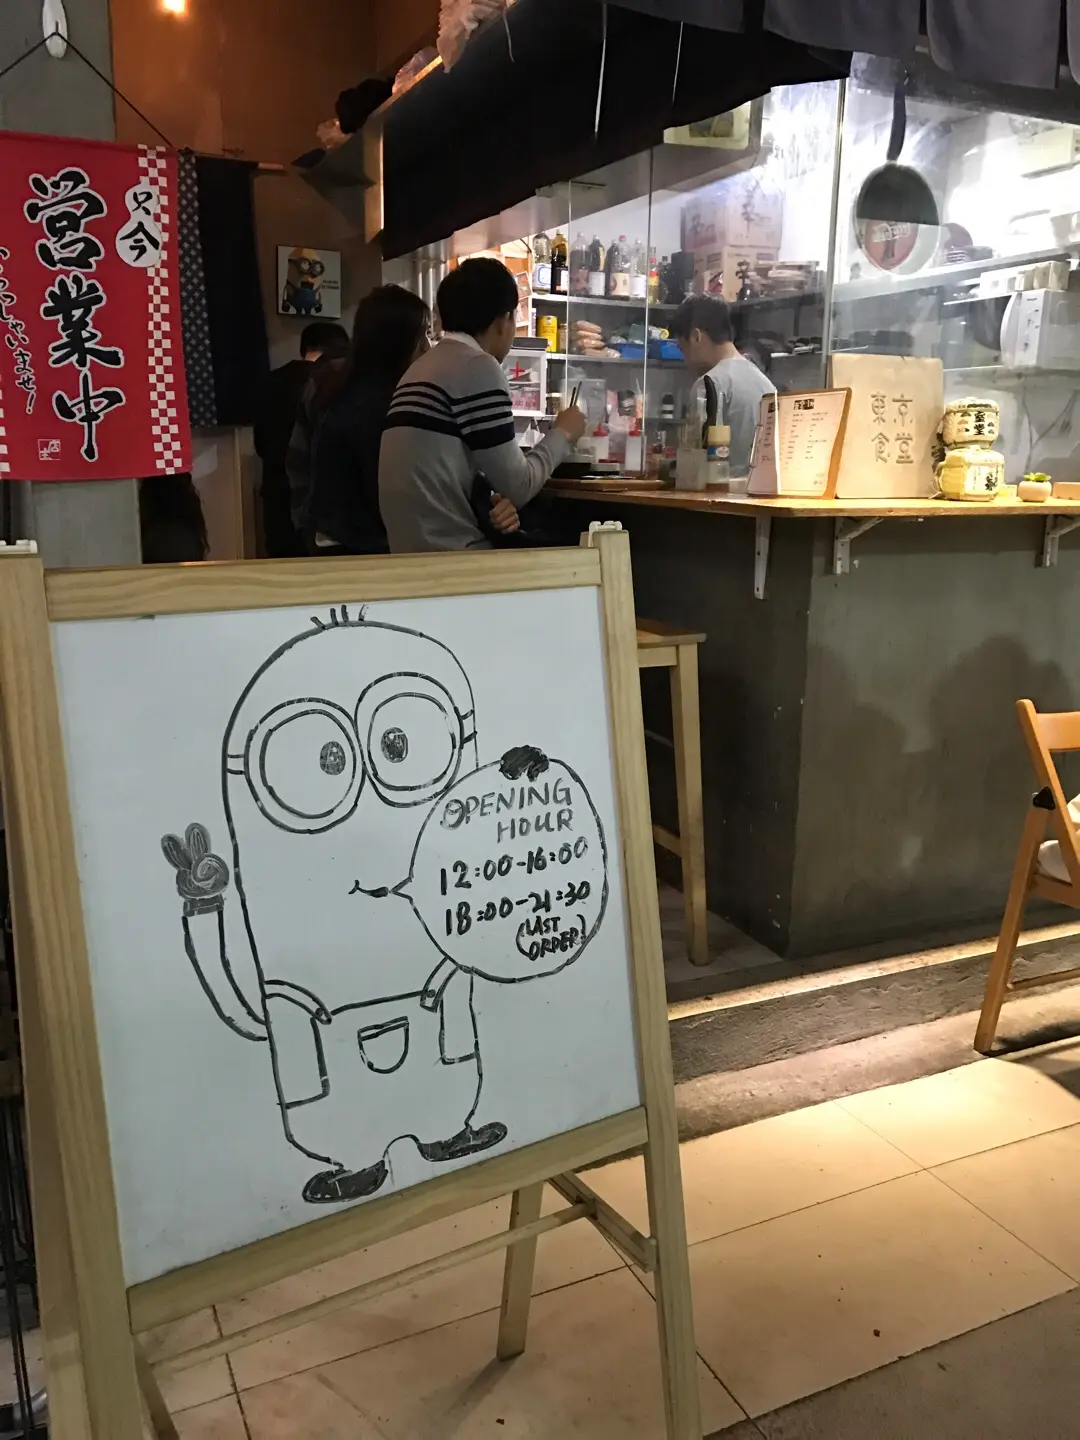 只今
営業中
いらっしゃいませ!
OPENING
HOUR
12:00-16:00
18:00-21:30
(LAST
ORDER)
東京
食堂